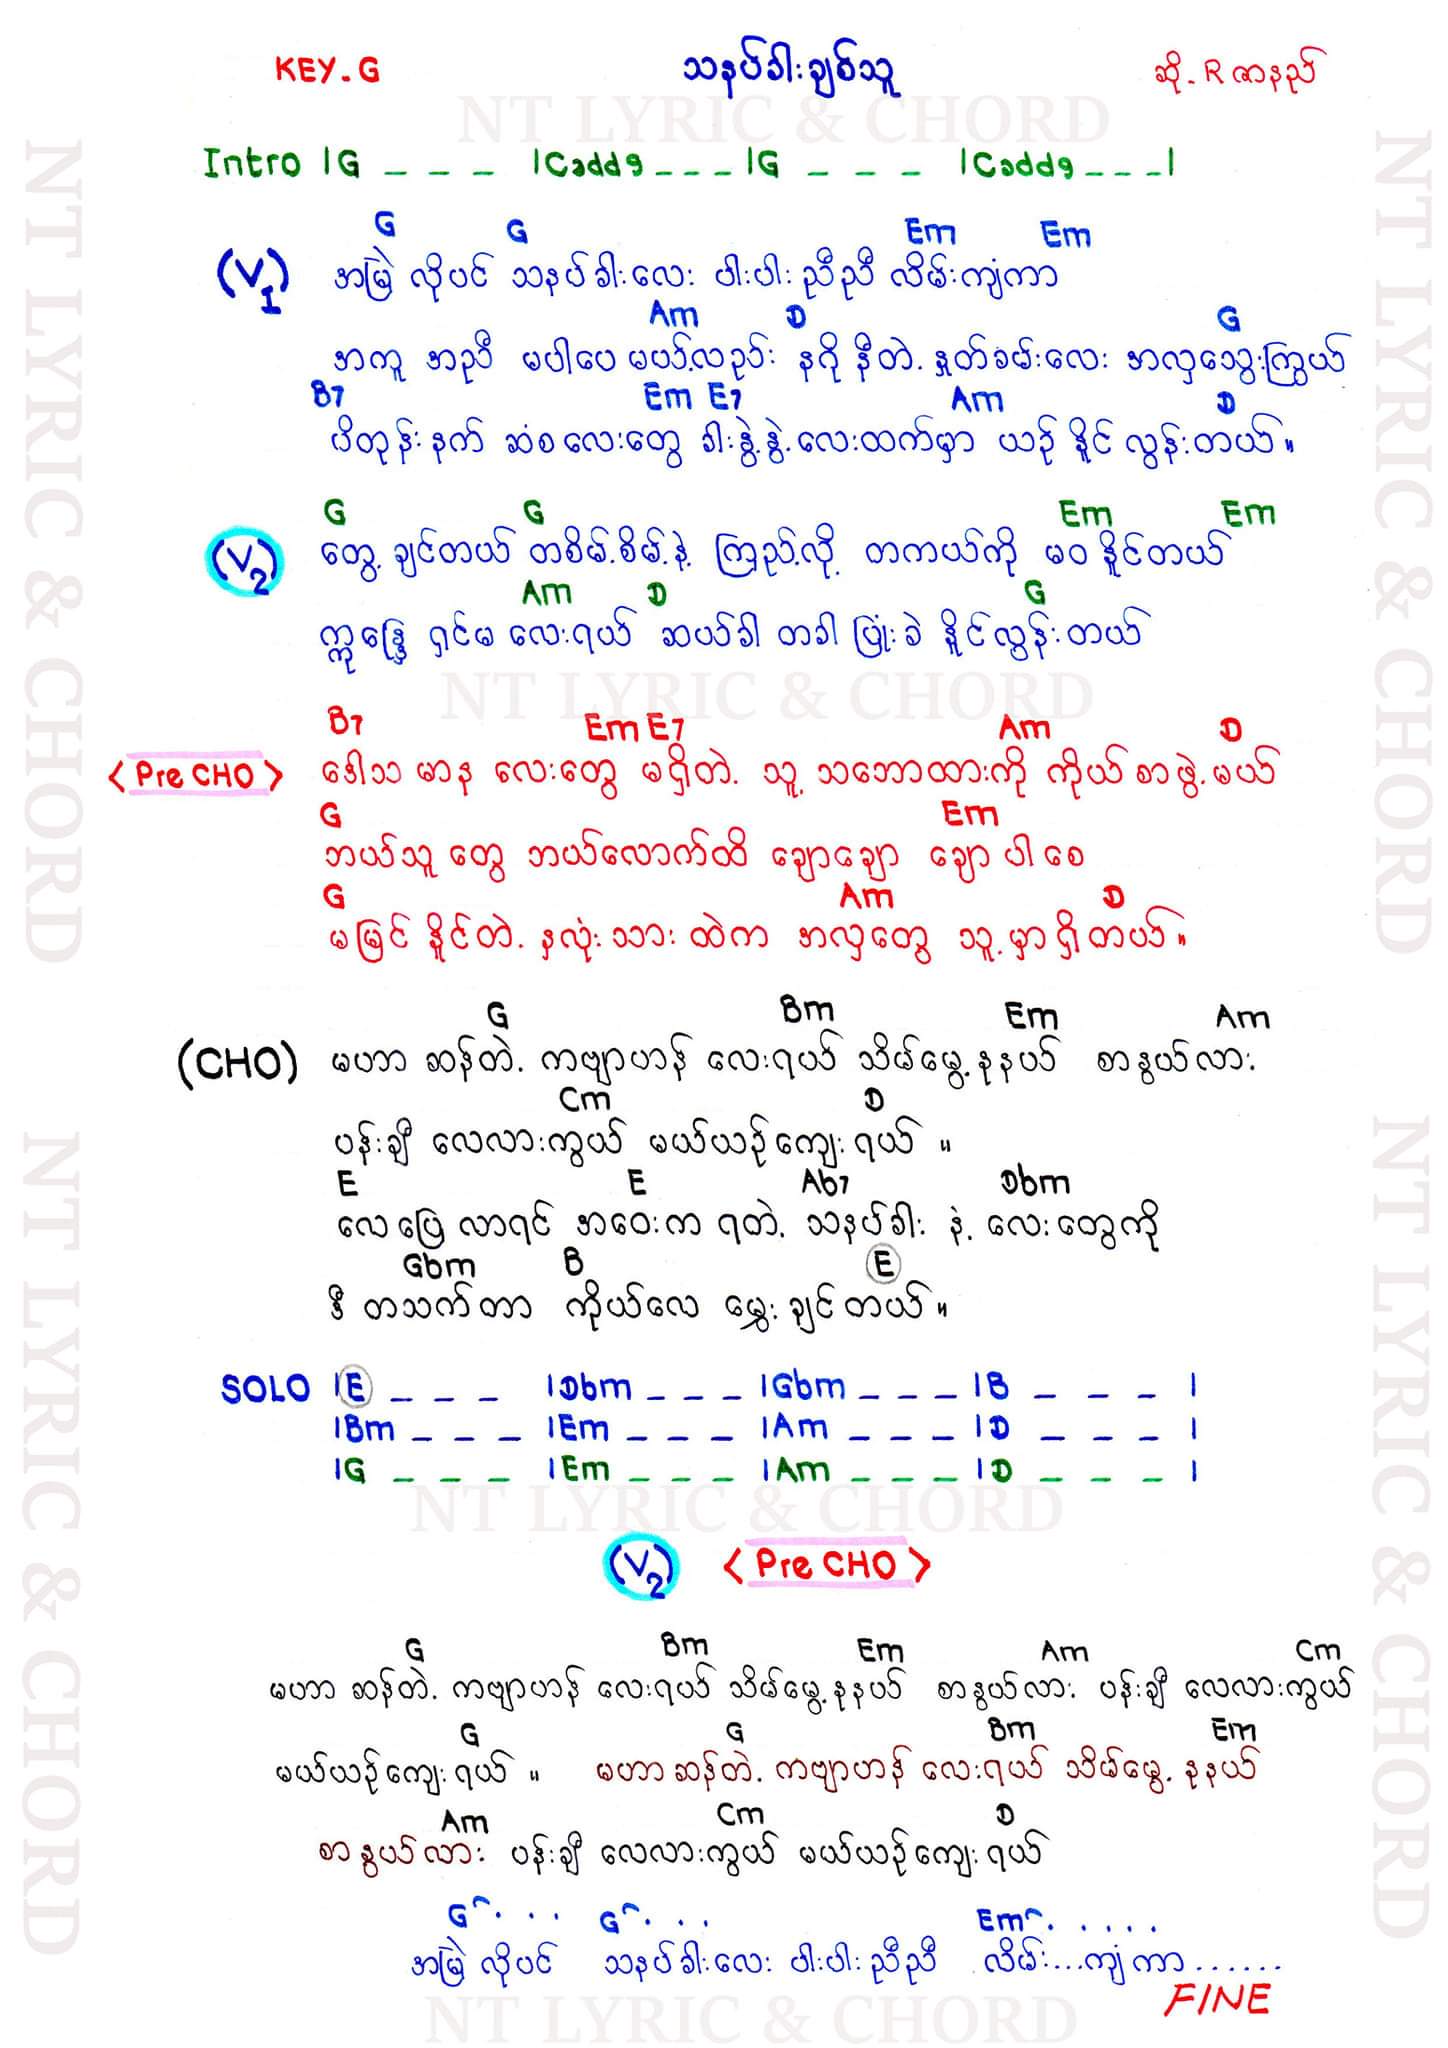 KEY-G သနပ်ခါးချစ်သူ ဆို-R ဇာနည်
NT LYRIC & CHORD
Intro |G _ _ _ |Cadd9 _ _ _ |G _ _ _ |Cadd9 _ _ _ |
G G Em Em
(V1) အမြဲ လိုပင် သနပ်ခါးလေး ပါးပါး ညီညီ လိမ်းကျံကာ
Am D G
အကူ အညီ မပါပေ မယ့်လည်း နဂို နီတဲ့ နှုတ်ခမ်းလေး အလှသွေးကြွယ်
B7 Em E7 Am D
ပိတုန်းနက် ဆံစလေးတွေ ခါးနွဲ့နွဲ့လေးထက်မှာ ယဉ် နိုင် လွန်းတယ်။
G G Em Em
(V2) တွေ့ ချင်တယ် တစိမ့်စိမ့်နဲ့ ကြည့်လို့ တကယ်ကို မဝ နိုင်တယ်
Am D G
ဣန္ဒြေ ရှင်မ လေးရယ် ဆယ်ခါ တခါ ပြုံးခဲ နိုင်လွန်းတယ်
NT LYRIC & CHORD
B7 Em E7 Am D
<Pre CHO> ဒေါသ မာန လေးတွေ မရှိတဲ့ သူ့ သဘောထားကို ကိုယ် စာဖွဲ့မယ်
G Em
ဘယ်သူ တွေ ဘယ်လောက်ထိ ချောချော ချော ပါ စေ
G Am D
မမြင် နိုင်တဲ့ နှလုံးသား ထဲက အလှတွေ သူ့မှာရှိတယ်။
G Bm Em Am
(CHO) မဟာ ဆန်တဲ့ ကဗျာဟန် လေးရယ် သိမ်မွေ့နုနယ် စာနွယ်လား
Cm D
ပန်းချီ လေလားကွယ် မယ်ယဉ်ကျေးရယ် ။
E E Ab7 Dbm
လေပြေ လာရင် အဝေးက ရတဲ့ သနပ်ခါး နဲ့ လေးတွေကို
Gbm B E
ဒီ တသက်တာ ကိုယ်လေ မွှေးချင်တယ်။
SOLO |E _ _ _ |Dbm _ _ _ |Gbm _ _ _ |B _ _ _ |
|Bm _ _ _ |Em _ _ _ |Am _ _ _ |D _ _ _ |
|G _ _ _ |Em _ _ _ |Am _ _ _ |D _ _ _ |
NT LYRIC & CHORD
(V2) <Pre CHO>
G Bm Em Am Cm
မဟာ ဆန်တဲ့ ကဗျာဟန် လေးရယ် သိမ်မွေ့နုနယ် စာနွယ်လား ပန်းချီ လေလားကွယ်
G G Bm Em
မယ်ယဉ်ကျေးရယ် ။ မဟာဆန်တဲ့ ကဗျာဟန် လေးရယ် သိမ်မွေ့ နုနယ်
Am Cm D
စာနွယ်လား ပန်းချီ လေလားကွယ် မယ်ယဉ်ကျေးရယ်
G . . . G . . . Em . . . . .
အမြဲ လိုပင် သနပ်ခါးလေး ပါးပါး ညီညီ လိမ်း...ကျံကာ......
FINE
NT LYRIC & CHORD
NT LYRIC & CHORD
NT LYRIC & CHORD
NT LYRIC & CHORD
NT LYRIC & CHORD